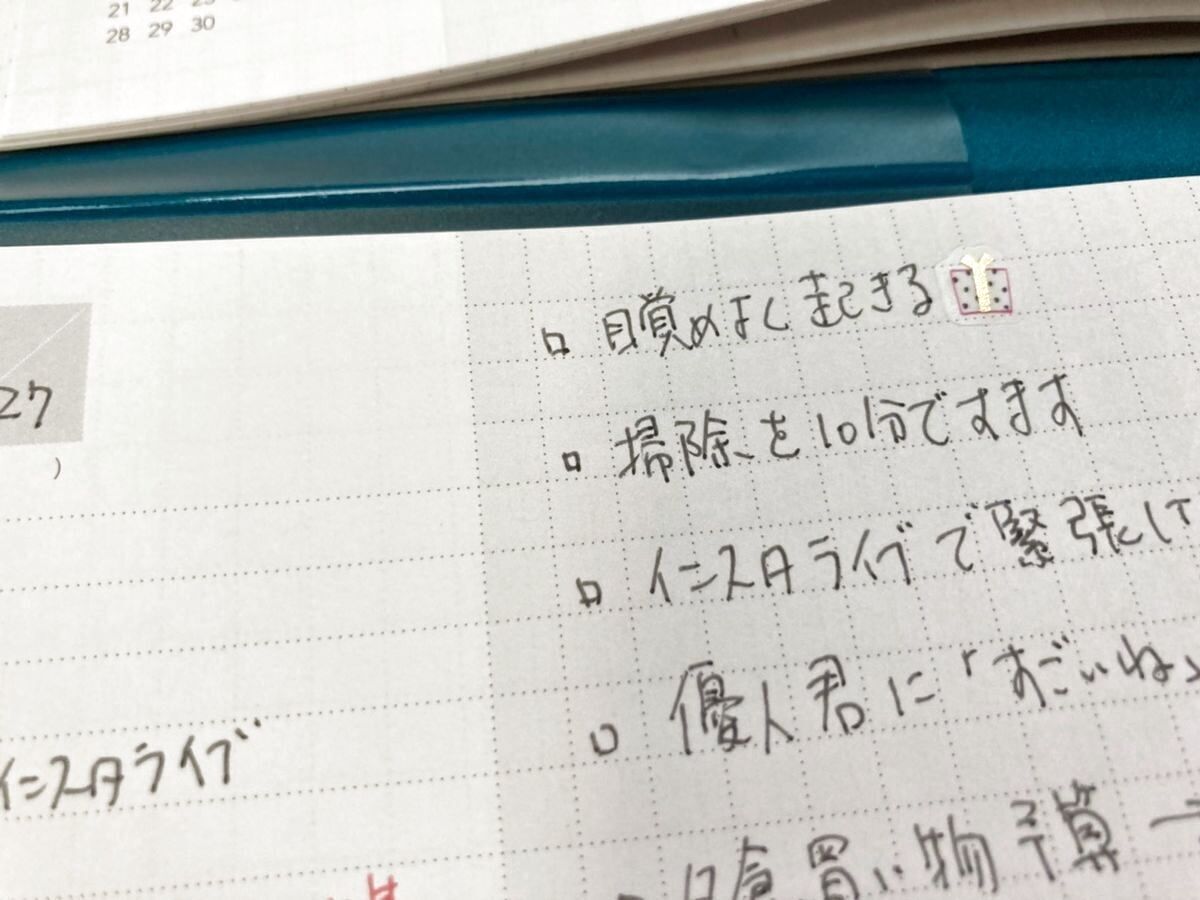 21 22 23
28 29 30
27
)
□ 目覚めよく起きる
□ 掃除を10分ですます
□ インスタライブで緊張して
□ 優人君に「すごいね」
インスタライブ
買い物予算